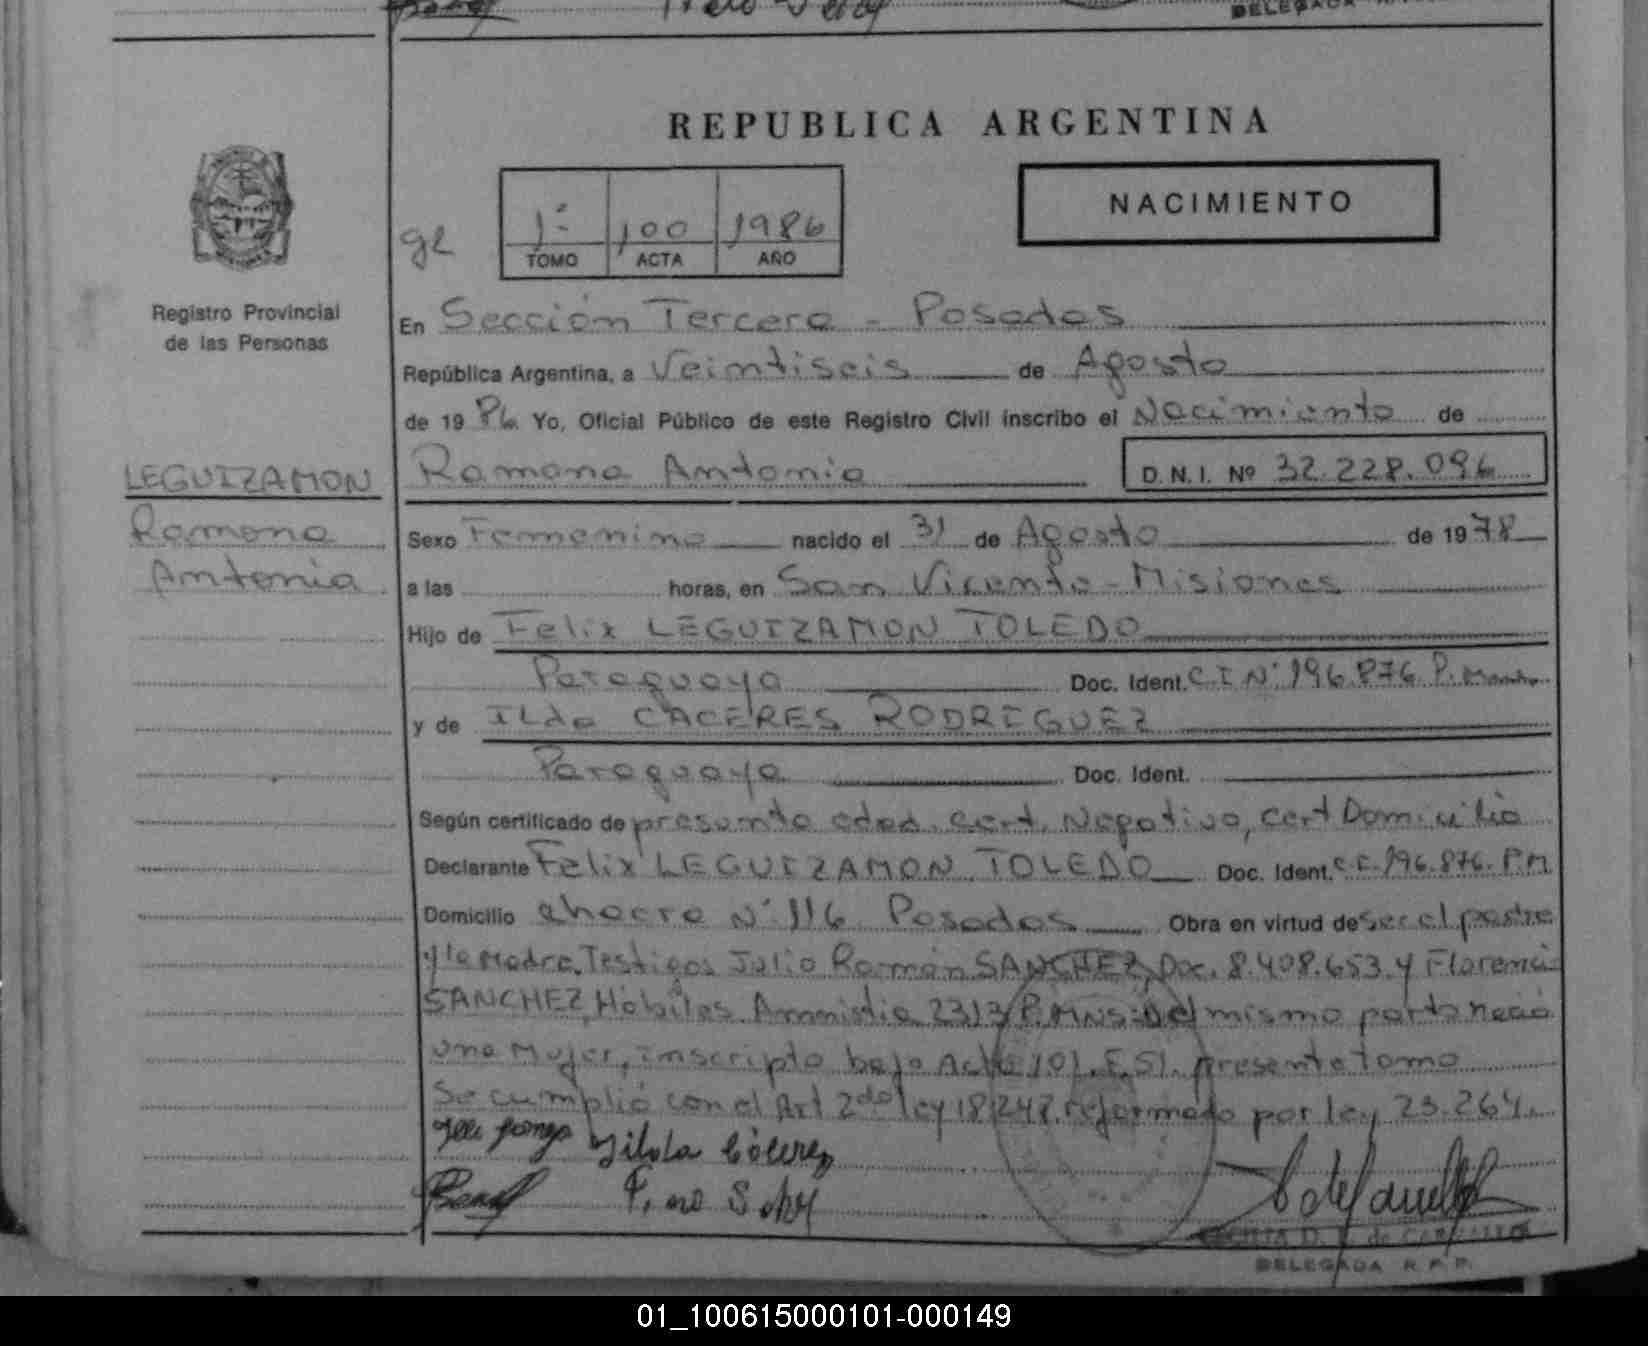 REPUBLICA ARGENTINA
NACIMIENTO
ge
1º 100 1986
TOMO ACTA AÑO
Registro Provincial
de las Personas
En Sección Tercera - Posadas
República Argentina, a Veintiseis de Agosto
de 1986 Yo, Oficial Público de este Registro Civil inscribo el Nacimiento de
LEGUIZAMON
Ramona
Antonia
Ramona Antonia D.N.I. Nº 32.228.096
Sexo Femenino nacido el 31 de Agosto de 1978
a las horas, en San Vicente - Misiones
Hijo de Felix LEGUIZAMON TOLEDO
Paraguaya Doc. Ident. C.I Nº 196.876. P.
y de Ilda CACERES RODRIGUEZ
Paraguaya Doc. Ident.
Según certificado de presunta edad, cert. Negativo, cert Domicilio
Declarante Felix LEGUIZAMON TOLEDO Doc. Ident. C.I. 196.876. P.M
Domicilio Chacra Nº 116 Posadas Obra en virtud de ser el padre
y la Madre. Testigos Julio Ramón SANCHEZ, Doc. 8.408.653. y
SANCHEZ, Hábiles. Amnistia 2313 P. MNS: Del mismo parto nació
una Mujer, inscripta bajo Acta 101. F. 51. presente tomo
Se cumplió con el Art 2do ley 18.247. reformado por ley 23.264.
DELEGADA R.P.P.
01_100615000101-000149